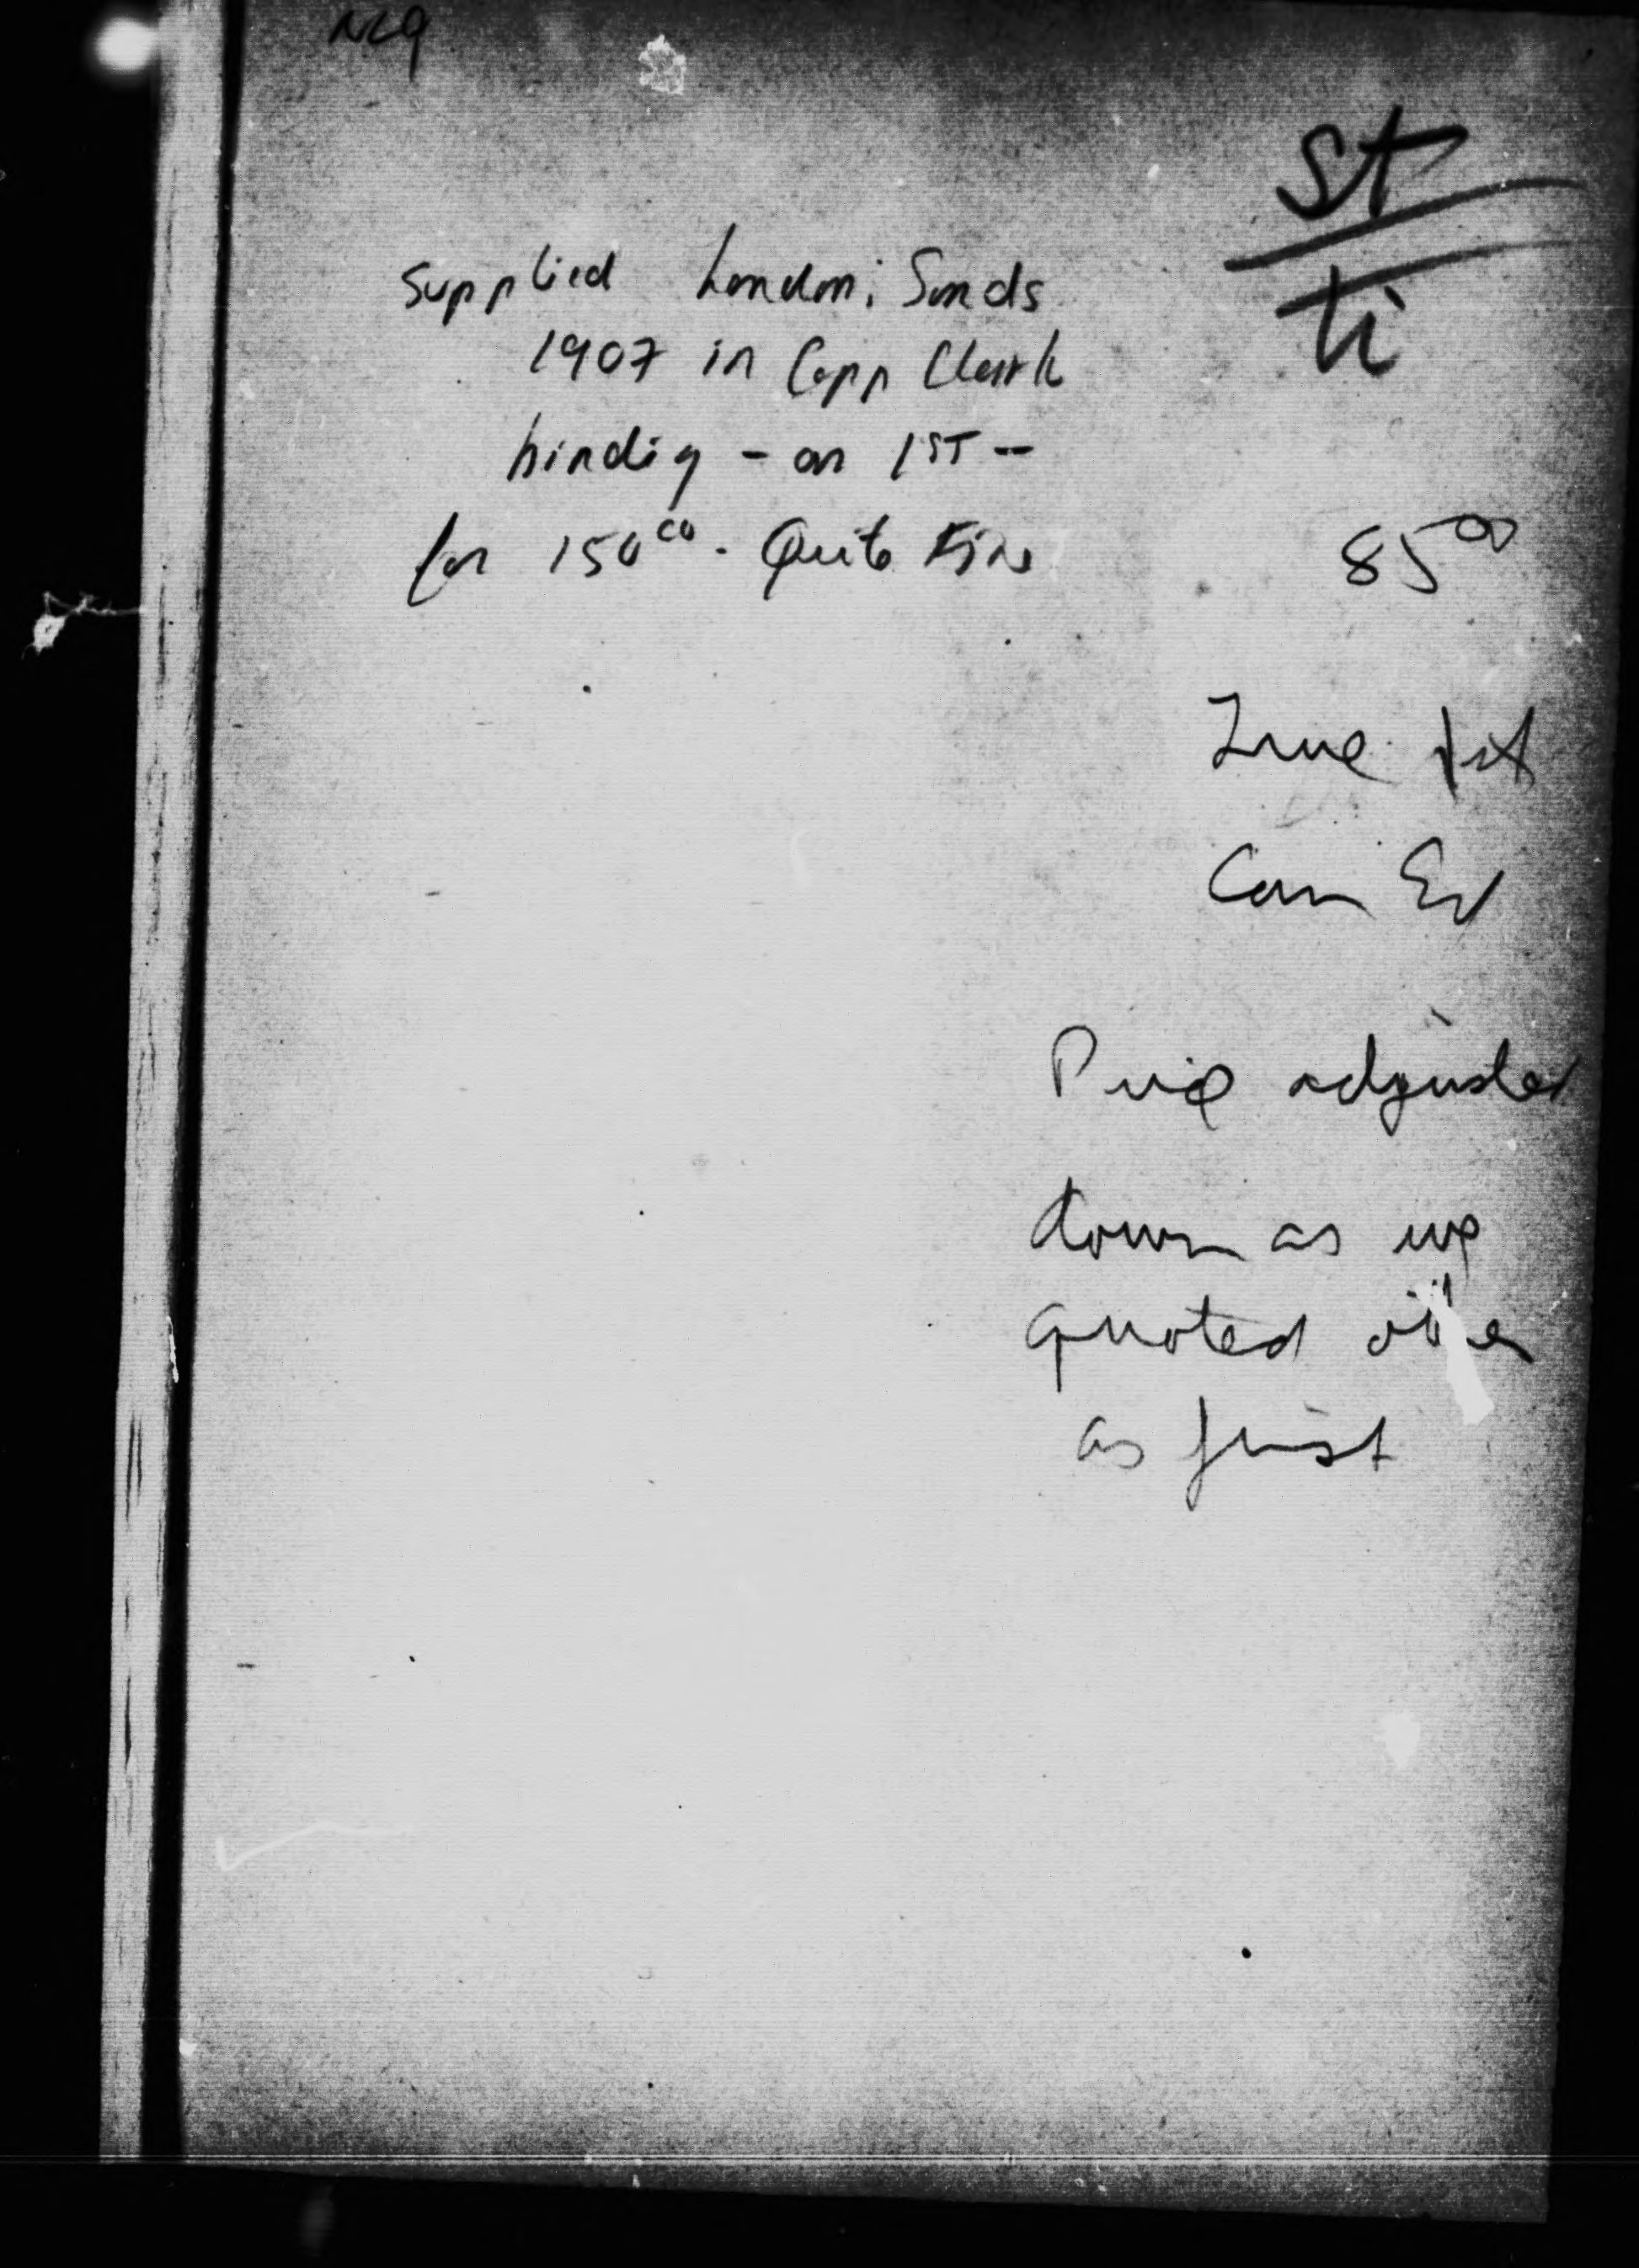 st
ti
supplied London; Sands
1907 in Copp Clark
binding - as 1ST --
for 150 00. Quite Fine
85 00
True 1st
Can Ed
Price adjusted
down as we
quoted other
as first